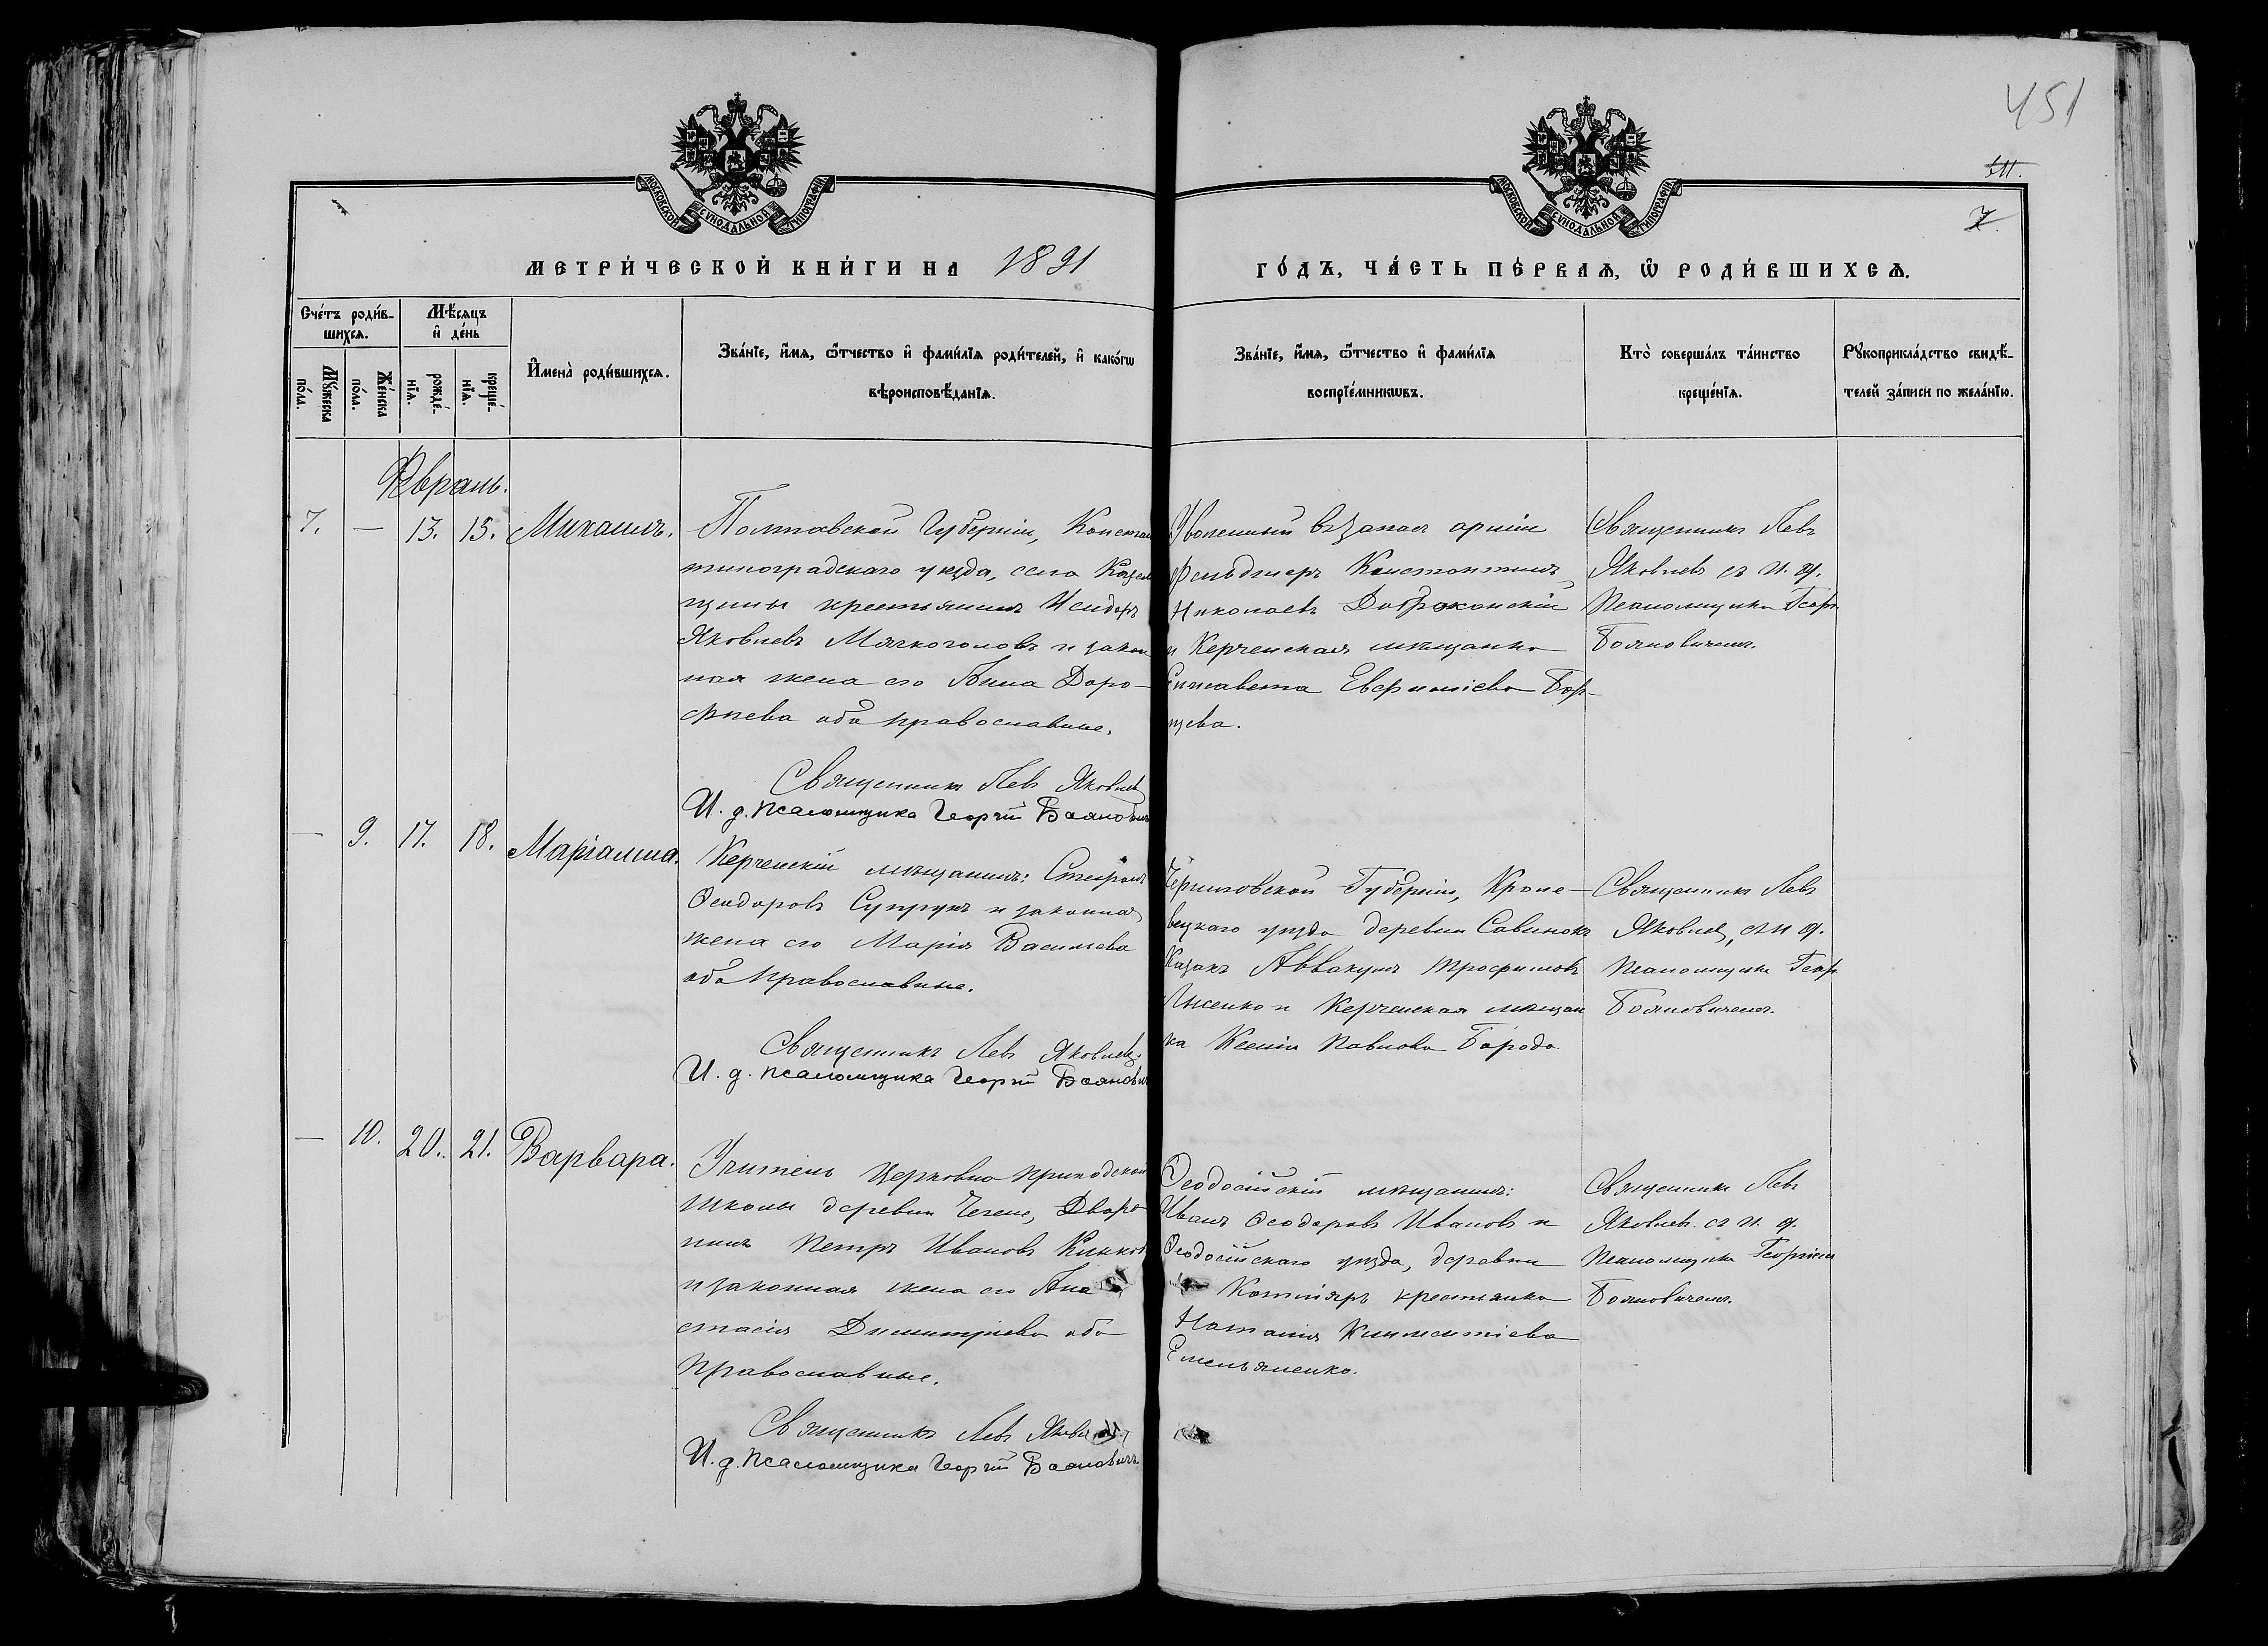 451
МОСКОВСКОЙ СѴНОДАЛЬНОЙ ТИПОГРАФІИ
МОСКОВСКОЙ СѴНОДАЛЬНОЙ ТИПОГРАФІИ
7.
МЕТРИ́ЧЕСКОЙ КНИ́ГИ НА 1891
ГО́ДЪ, ЧА́СТЬ ПЕ́РВАѦ, Ѡ҆ РОДИ́ВШИХСѦ.
Сче́тъ роди́в-
шихсѧ.
Мꙋ́жеска по́ла.
Же́нска по́ла.
Мѣ́сѧцъ
и҆ де́нь
рожде́-
нїѧ.
креще́-
нїѧ.
И҆мена̀ роди́вшихсѧ.
Зва́нїе, и҆́мѧ, ѻ҆́тчество и҆ фами́лїѧ роди́телей, и҆ како́гѡ
вѣроисповѣ́данїѧ.
Зва́нїе, и҆́мѧ, ѻ҆́тчество и҆ фами́лїѧ
воспрїе́мникѡвъ.
Кто̀ соверша́лъ та́инство
креще́нїѧ.
Рꙋкоприкла́дство свидѣ́-
телей за́писи по жела́нїю.
Февраль.
7. — 13. 15. Михаилъ.
Полтавской Губерніи, Констан
тиноградскаго уѣзда, села
крестьянинъ Исидоръ
Яковлевъ Мягкоголовъ и закон
ная жена его Анна Доро-
феева оба православные.
Священникъ Левъ Яковлев
И. д. псаломщика Георгій Боянович
Уволенный въ запасъ арміи
фельдшеръ Константинъ
Николаевъ
и Керченская мѣщанка
Елисавета Бор-
щева.
Священникъ Левъ
Яковлевъ съ и. д.
псаломщика Георг
Бояновичемъ.
— 9. 17. 18. Маріамна.
Керченскій мѣщанинъ: Стефанъ
Ѳеодоровъ Супрунъ и законная
жена его Марія Васильева
оба православные.
Священникъ Левъ Яковлевъ
И. д. псаломщика Георгій Боянович
Черниговской Губерніи, Кроле-
вецкаго уѣзда деревни Савинокъ
Казакъ Аввакумъ Трофимовъ
Лысенко и Керченская мѣщан
ка Ксенія Павлова Борода.
Священникъ Левъ
Яковлевъ, съ и. д.
псаломщика Георг
Бояновичемъ.
— 10. 20. 21. Варвара.
Учитель церковно приходской
школы деревни Дворя
нинъ Петръ Ивановъ
и законная жена его Ана
стасія Димитріева оба
православные.
Священникъ Левъ Яковлев
И. д. псаломщика Георгій Бояновичъ.
Ѳеодосійскій мѣщанинъ:
Иванъ Ѳеодоровъ Ивановъ и
Ѳеодосійскаго уѣзда, деревни
крестьянка
Наталія Климентіева
Емельяненко.
Священникъ Левъ
Яковлевъ съ и. д.
псаломщика Георгіем
Бояновичемъ.